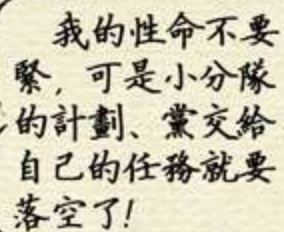 我的性命不要
緊，可是小分隊
的計劃、黨交給
自己的任務就要
落空了！